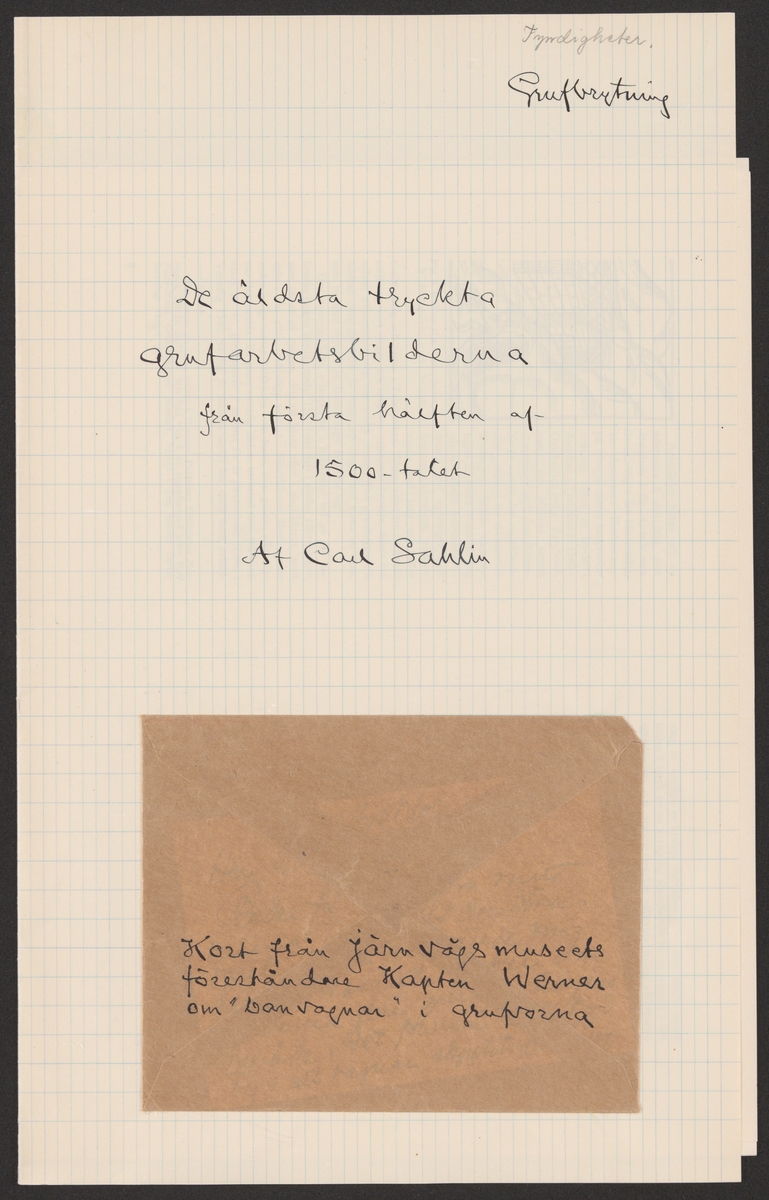 Fyndigheter.
Grufbrytning
De äldsta tryckta
grufarbetsbilderna
från första hälften af
1500-talet
Af Carl Sahlin
Kort från Järnvägsmuseets
föreståndare Kapten Werner
om "banvagnar" i grufvorna